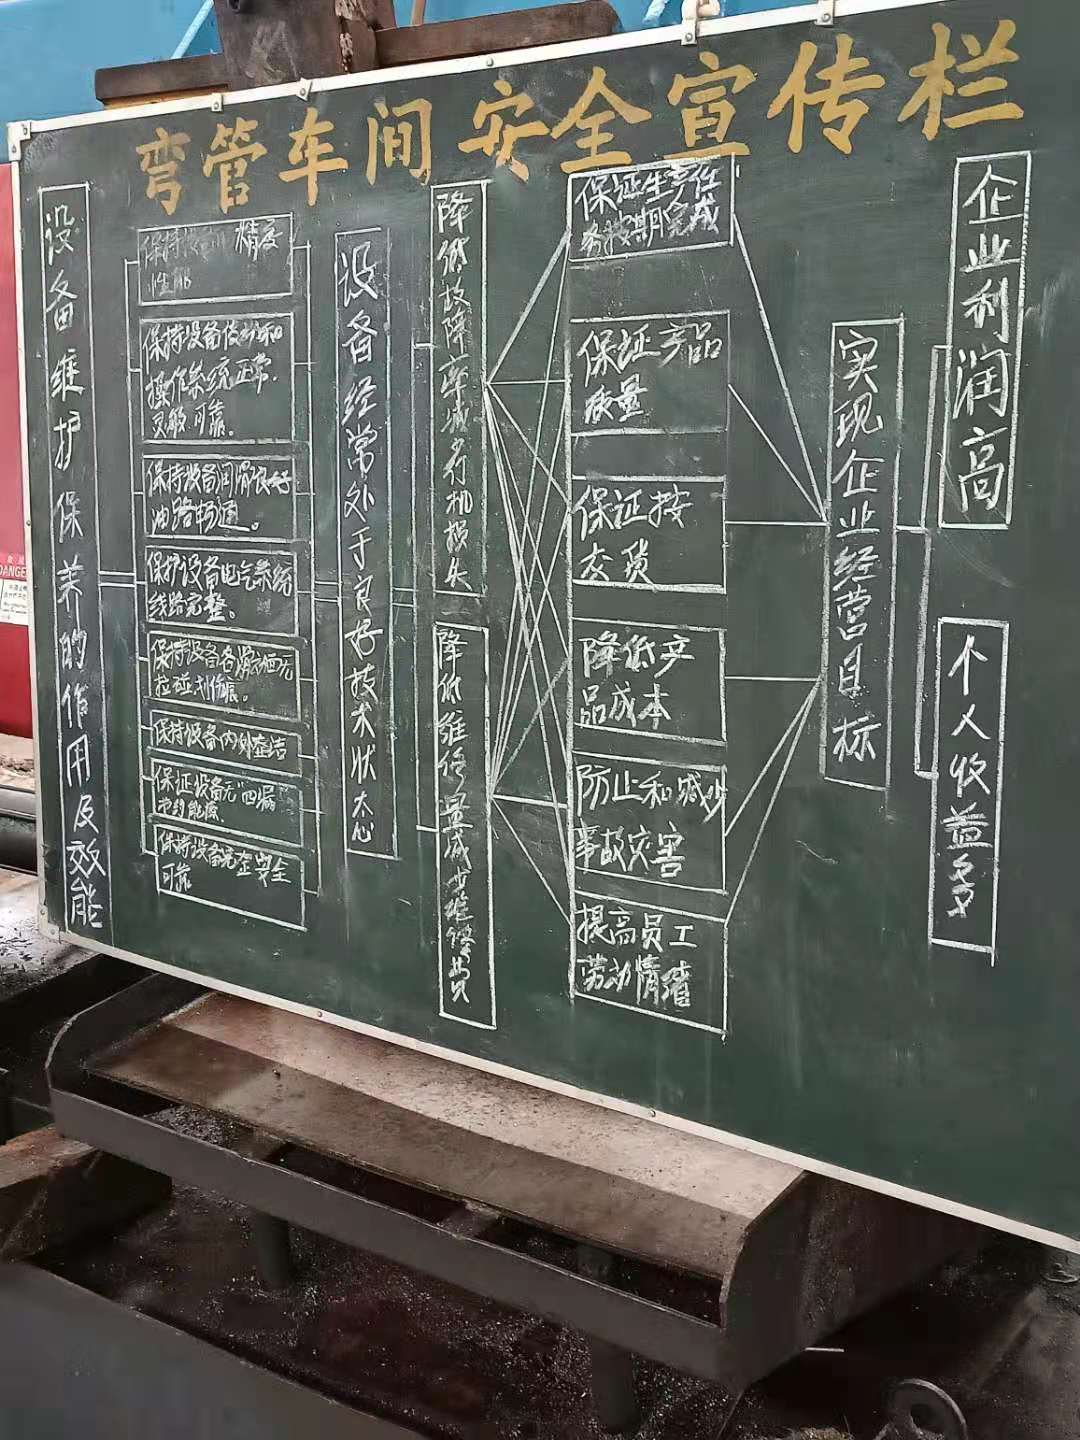 弯管车间安全宣传栏
设备维护保养的作用及效能
保持 精度
性
保持设备传动和
操作系统正常.
灵敏可靠。
保持设备润滑良好
油路畅通。
保护设备电气系统
线路完整。
保持设备各滑动面无
拉碰划伤痕。
保持设备内外整洁
保证设备无"四漏"
节约能源
保持设备 安全
可靠
设备经常处于良好技术状态
降低故障率减少行机损失
降低维修量减少维修费
保证生产任
务按期完成
保证产品
质量
保证按
交货
降低产
品成本
防止和减少
事故灾害
提高员工
劳动情绪
实现企业经营目标
企业利润高
个人收益多
DANGER